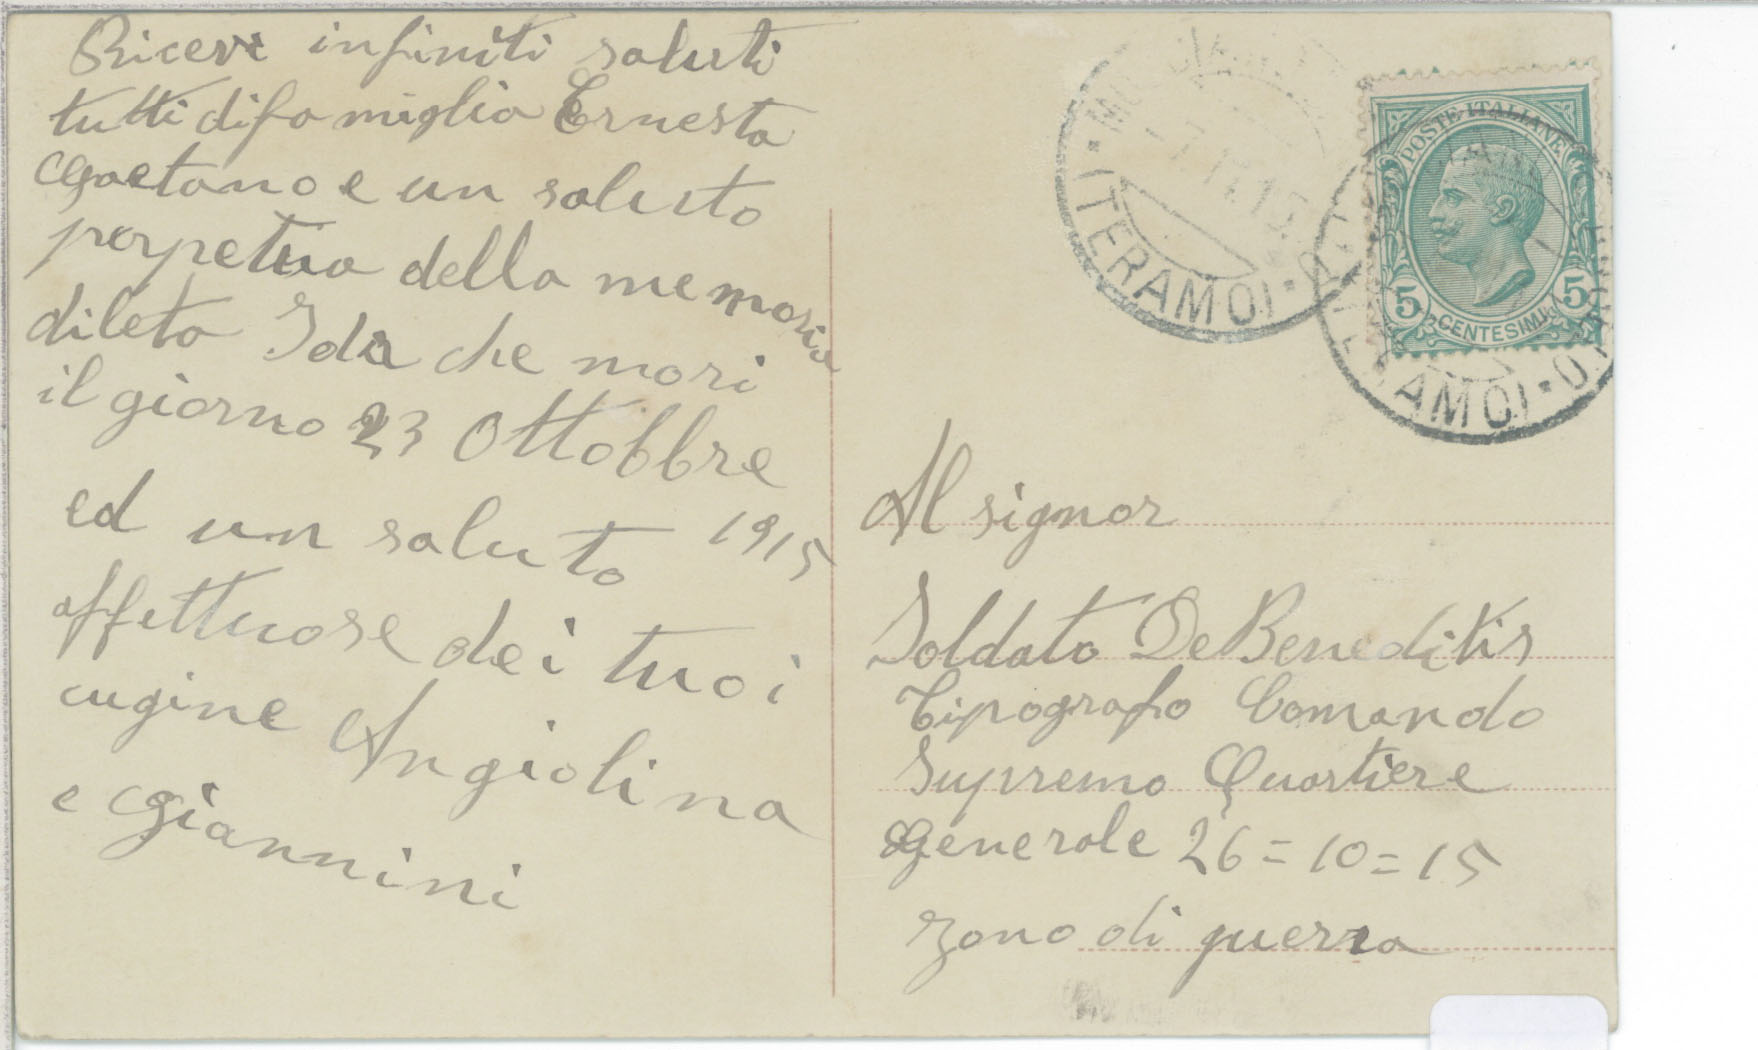 Ricevi infiniti saluti
tutti difamiglia Ernesta
Gaetano e un saluto
perpetua della memoria
dileta Ida che mori
il giorno 23 Ottobbre
1915
ed un saluto
affettuose dei tuoi
cugine Angiolina
e Giannini
POSTE ITALIANE
5 CENTESIMI 5
(TERAMO)
(TERAMO)
Al signor
Soldato De Beneditis
Tipografo Comando
Supremo Quartiere
Generale 26=10=15
zona di guerra